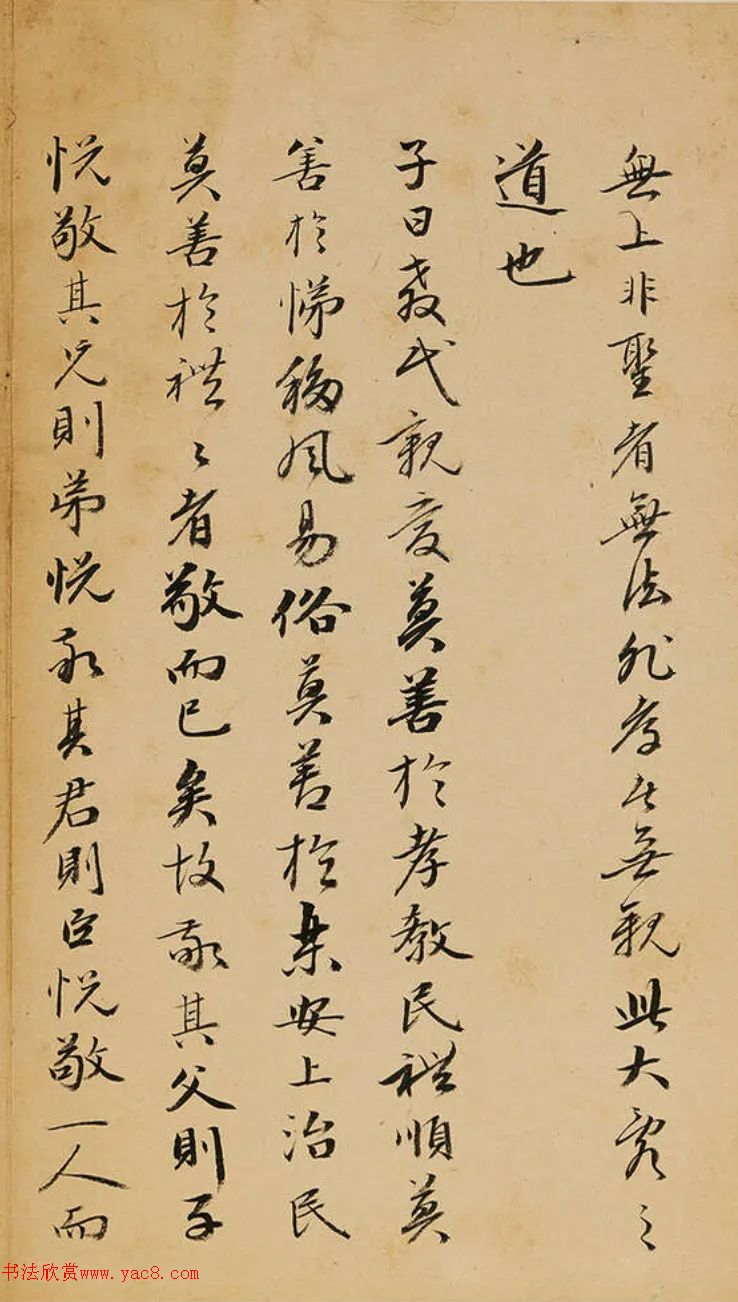 無上非聖者無法非孝者無親此大亂之
道也
子曰教民親愛莫善於孝教民禮順莫
善於悌移風易俗莫善於樂安上治民
莫善於禮〻者敬而已矣故敬其父則子
悅敬其兄則弟悅敬其君則臣悅敬一人而
书法欣赏www.yac8.com